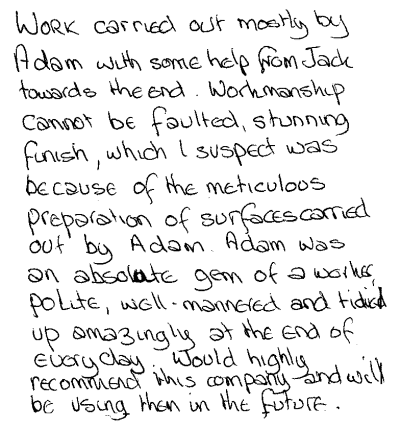 Work carried out mostly by
Adam with some help from Jack
towards the end. Workmanship
cannot be faulted, stunning
finish, which I suspect was
because of the meticulous
preparation of surfaces carried
out by Adam. Adam was
an absolute gem of a worker,
polite, well-mannered and tidied
up amazingly at the end of
every day. Would highly
recommend this company and will
be using them in the future.